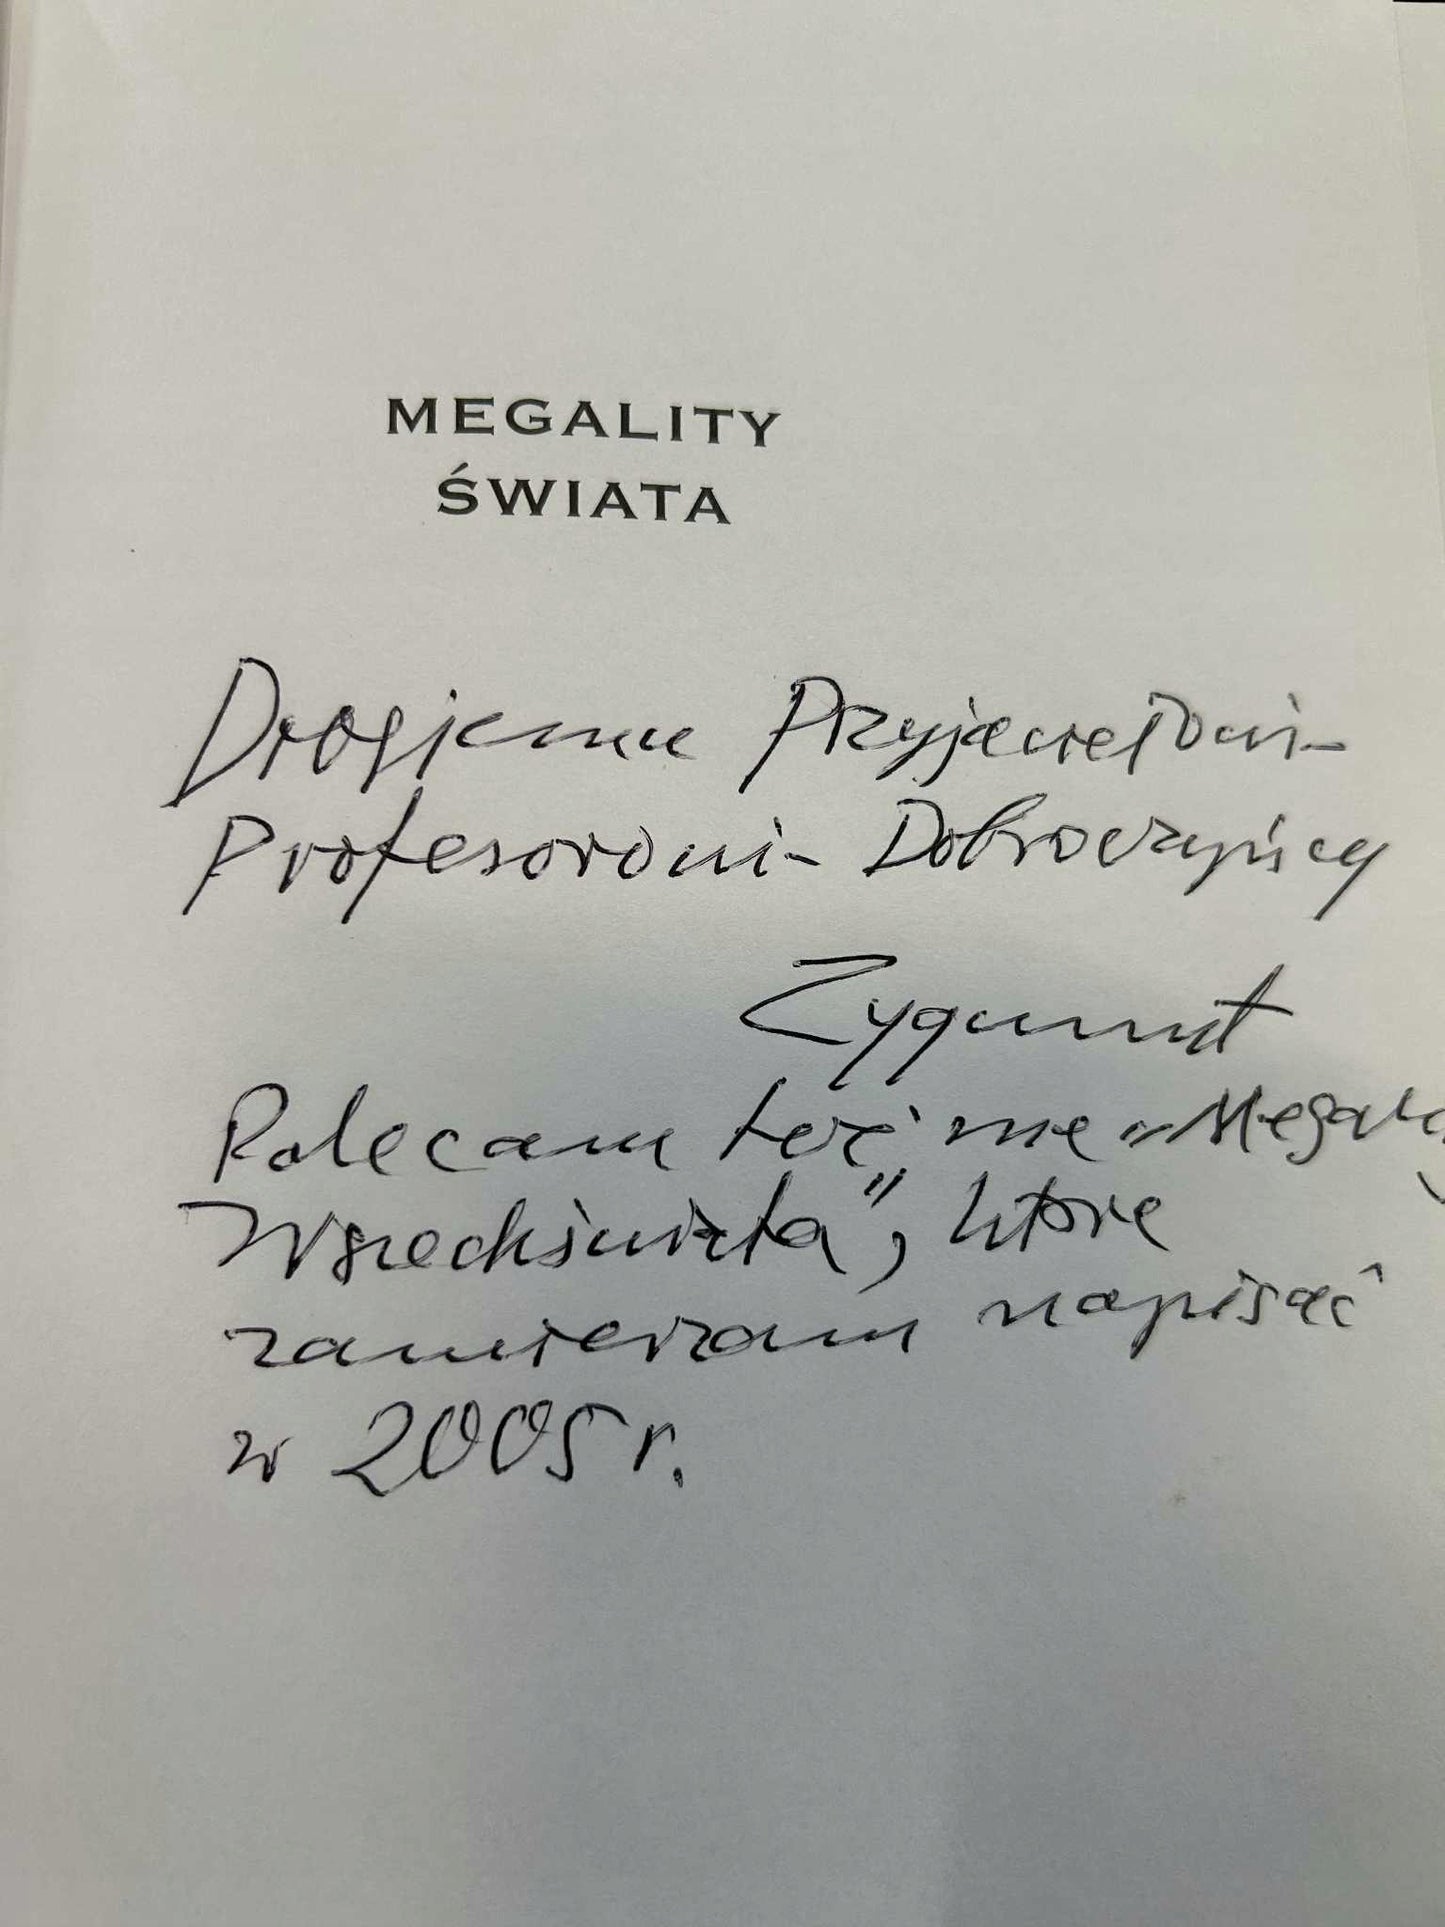 MEGALITY
ŚWIATA
Drogiemu Przyjacielowi-
Profesorowi- Dobroczyńcy
Zygmunt
Polecam też me „Megality
Wszechświata", które
zamierzam napisać
w 2005 r.